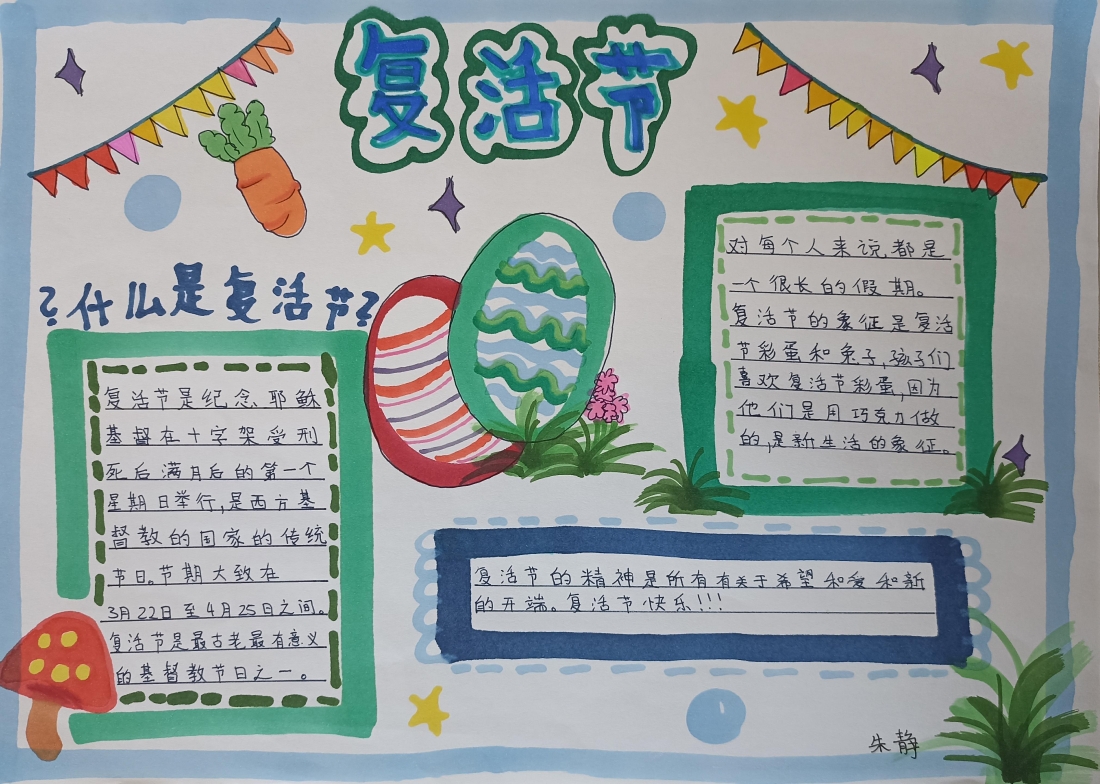 复活节
?什么是复活节?
复活节是纪念耶稣
基督在十字架受刑
死后满月后的第一个
星期日举行,是西方基
督教的国家的传统
节日。节期大致在
3月22日至4月25日之间。
复活节是最古老最有意义
的基督教节日之一。
对每个人来说都是
一个很长的假期。
复活节的象征是复活
节彩蛋和兔子,孩子们
喜欢复活节彩蛋,因为
他们是用巧克力做
的,是新生活的象征。
复活节的精神是所有有关于希望和爱和新
的开端。复活节快乐!!!
朱静